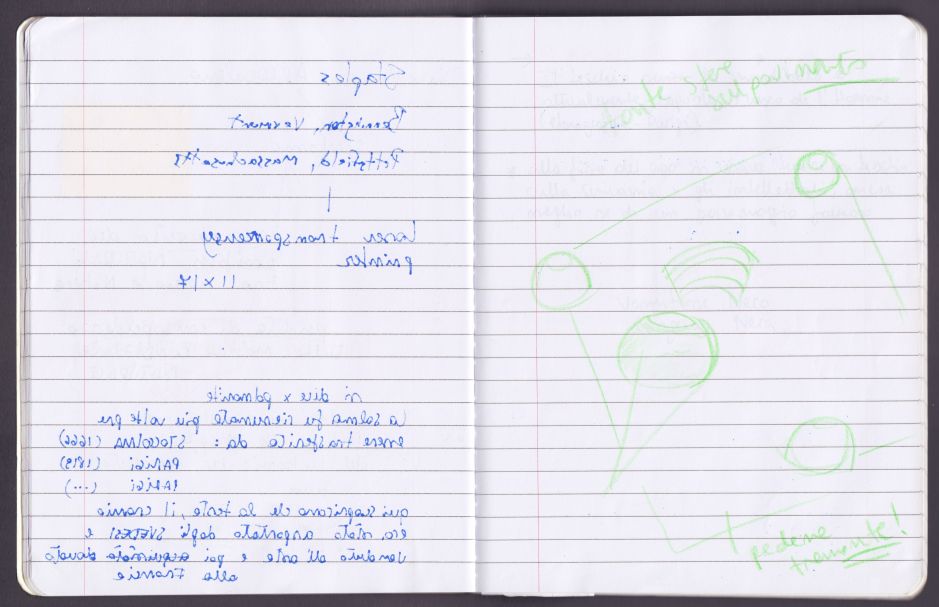 Staples
Bennington, Vermont
Pittsfield, Massachusetts
Laser transparency
printer
11x17
si dice x
La salma fu riesumata più volte per
essere trasferita da: STOCCOLMA (1666)
PARIGI (1819)
PARIGI (...)
qui scoprirono che la testa, il cranio
era stato asportato dagli SVEDESI e
venduto all'asta e poi acquistato donato
alla Francia
tante sfere
sul pavimento
tremante!